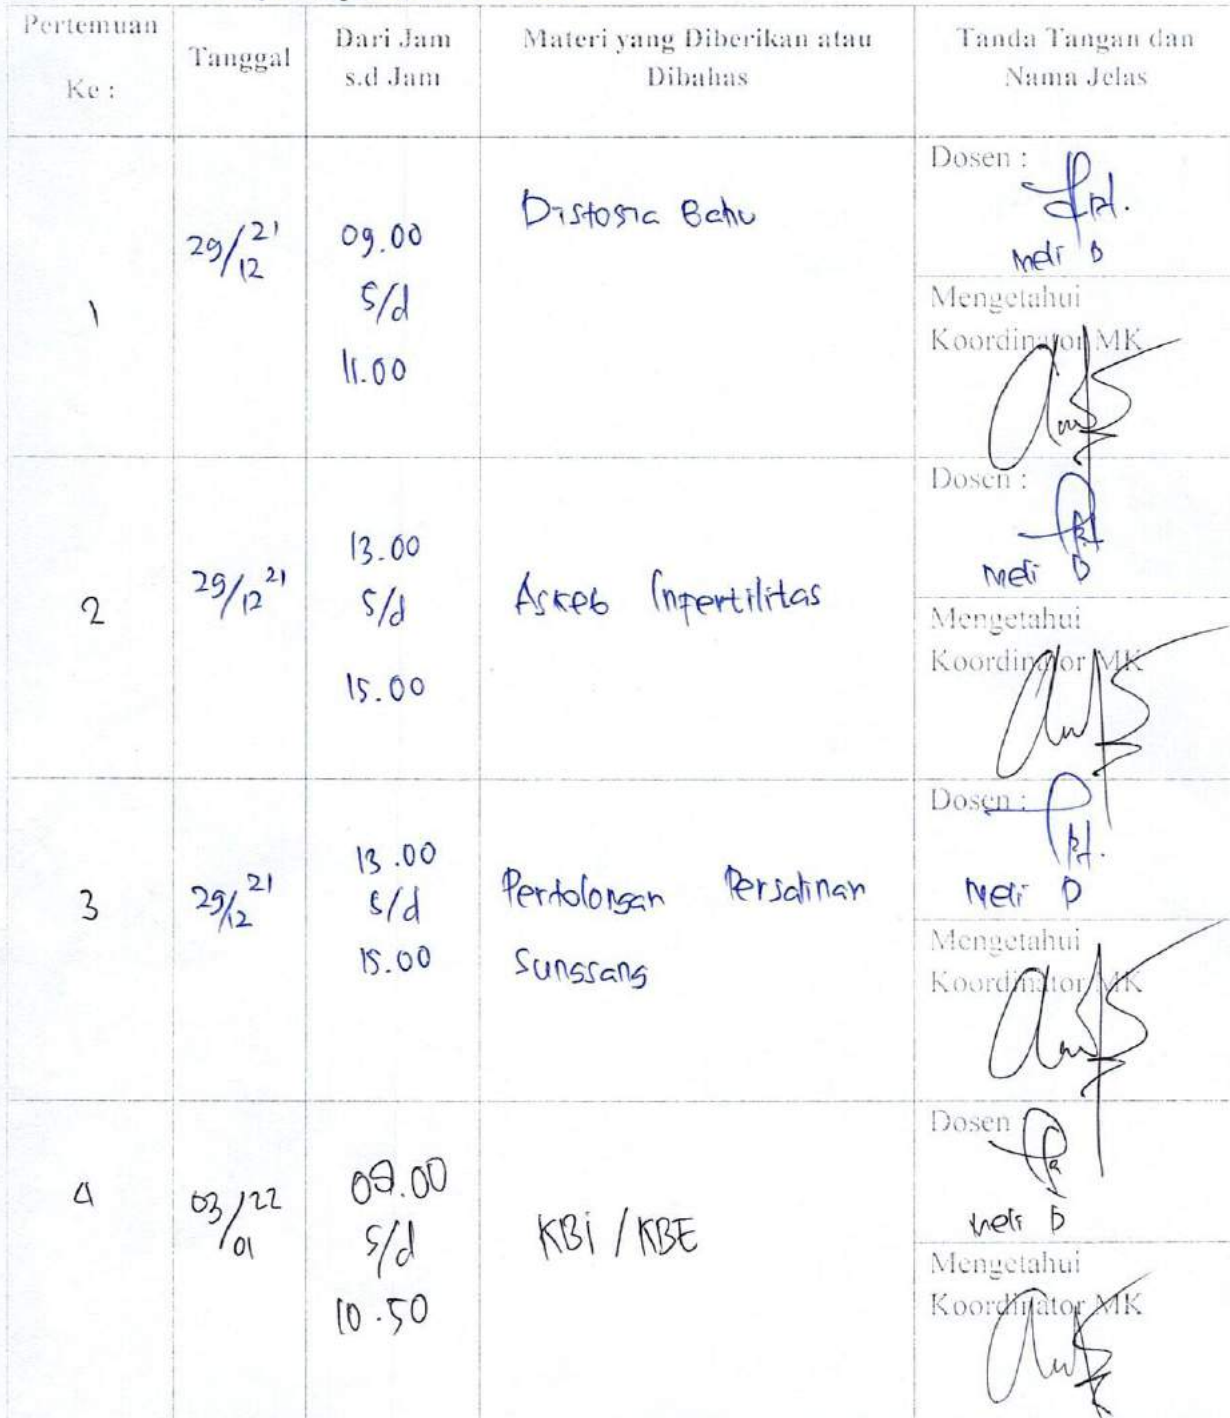 Pertemuan
Ke :
Tanggal
Dari Jam
s.d Jam
Materi yang Diberikan atau
Dibahas
Tanda Tangan dan
Nama Jelas
1
29/12 21
09.00
s/d
11.00
Distosia Bahu
Dosen :
Meli D
Mengetahui
Koordinator MK
2
29/12 21
13.00
s/d
15.00
Askeb Infertilitas
Dosen :
Meli D
Mengetahui
Koordinator MK
3
29/12 21
13.00
s/d
15.00
Pertolongan Persalinan
Sungsang
Dosen :
Meli D
Mengetahui
Koordinator MK
4
03/01 22
s/d
10.50
KBI / KBE
Dosen
Meli D
Mengetahui
Koordinator MK